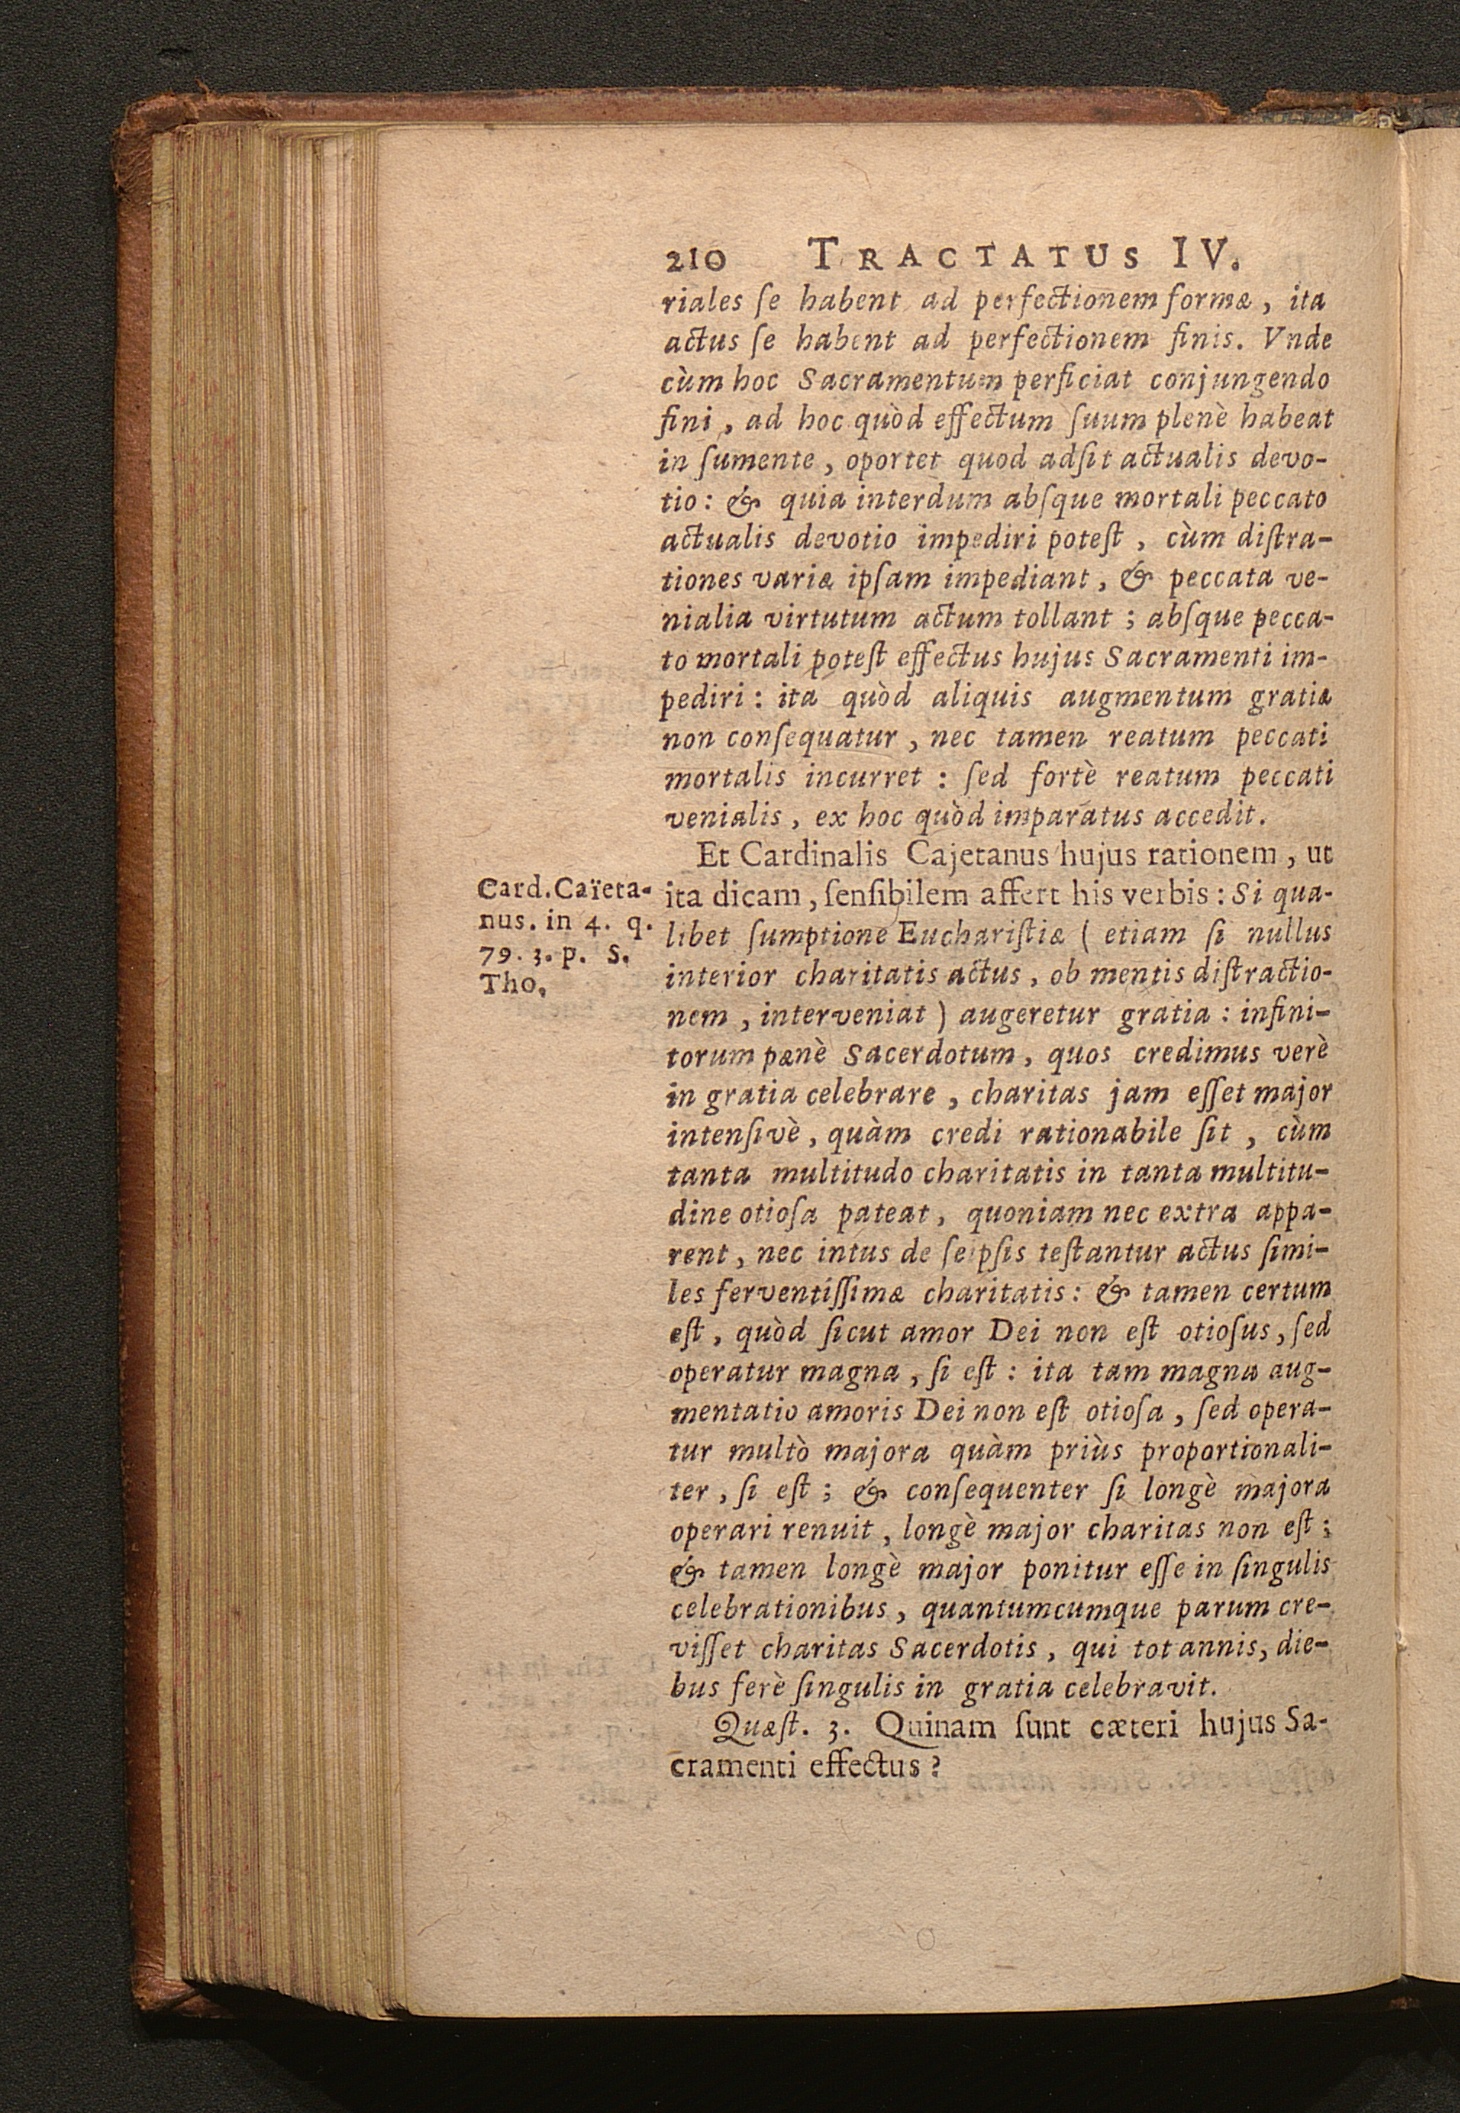 210 TRACTATUS IV.
riales ſe habent ad perfectionem formæ, ita
actus ſe habent ad perfectionem finis. Vnde
cùm hoc Sacramentum perficiat conjungendo
fini, ad hoc quòd effectum ſuum plenè habeat
in ſumente, oportet quod adſit actualis devo-
tio: & quia interdum abſque mortali peccato
actualis devotio impediri poteſt, cùm diſtra-
tiones variæ ipſam impediant, & peccata ve-
nialia virtutum actum tollant; abſque pecca-
to mortali poteſt effectus hujus Sacramenti im-
pediri: ita quòd aliquis augmentum gratiæ
non conſequatur, nec tamen reatum peccati
mortalis incurret: ſed fortè reatum peccati
venialis, ex hoc quòd imparatus accedit.
Et Cardinalis Cajetanus hujus rationem, ut
ita dicam, ſenſibilem affert his verbis: Si qua-
libet ſumptione Euchariſtiæ (etiam ſi nullus
interior charitatis actus, ob mentis diſtractio-
nem, interveniat) augeretur gratia: infini-
torum pænè Sacerdotum, quos credimus verè
in gratia celebrare, charitas jam eſſet major
intenſivè, quàm credi rationabile ſit, cùm
tanta multitudo charitatis in tanta multitu-
dine otioſa pateat, quoniam nec extra appa-
rent, nec intus de ſeipſis teſtantur actus ſimi-
les ferventiſſimæ charitatis: & tamen certum
eſt, quòd ſicut amor Dei non eſt otioſus, ſed
operatur magna, ſi eſt: ita tam magna aug-
mentatio amoris Dei non eſt otioſa, ſed opera-
tur multò majora quàm priùs proportionali-
ter, ſi eſt; & conſequenter ſi longè majora
operari renuit, longè major charitas non eſt;
& tamen longè major ponitur eſſe in ſingulis
celebrationibus, quantumcumque parum cre-
viſſet charitas Sacerdotis, qui tot annis, die-
bus ferè ſingulis in gratia celebravit.
Quæſt. 3. Quinam ſunt cæteri hujus Sa-
cramenti effectus?
Card. Caïeta-
nus. in 4. q.
79. 3. p. S.
Tho.